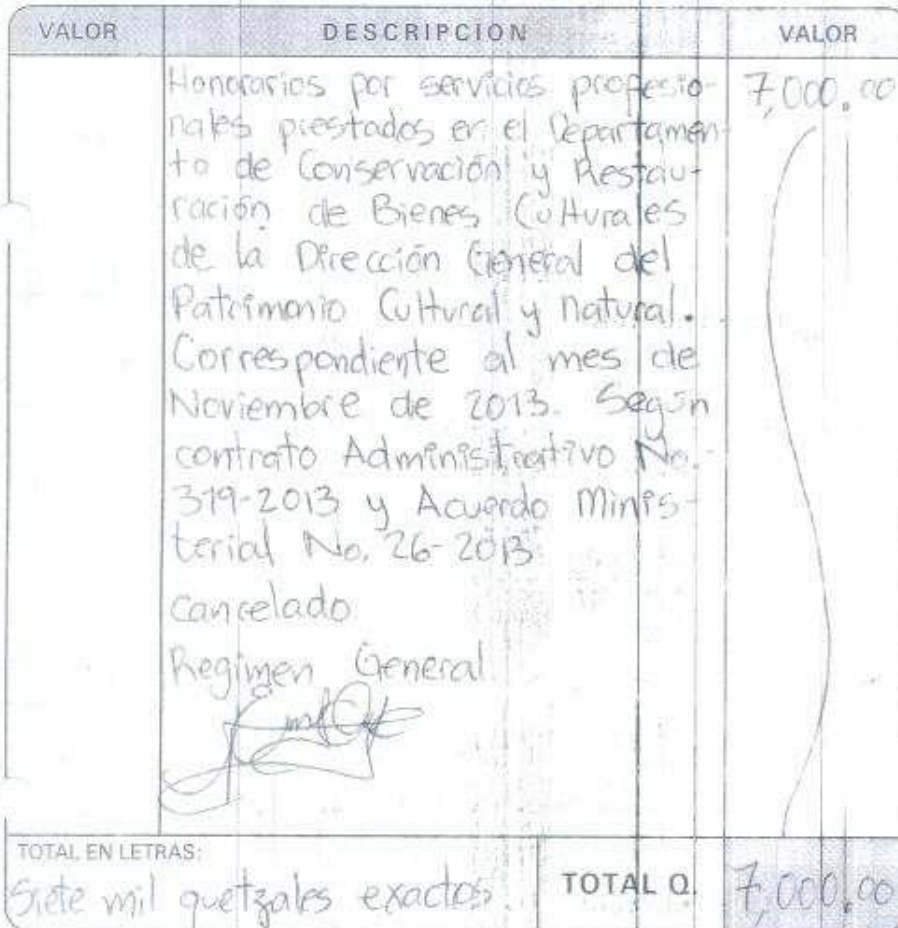 VALOR DESCRIPCION VALOR
Honorarios por servicios profesio- 7,000.00
nales prestados en el Departamen-
to de Conservación y Restau-
ración de Bienes Culturales
de la Dirección General del
Patrimonio Cultural y natural.
Correspondiente al mes de
Noviembre de 2013. Según
contrato Administrativo No.
379-2013 y Acuerdo Minis-
terial No. 26-2013
Cancelado
Regimen General
TOTAL EN LETRAS:
Siete mil quetzales exactos. TOTAL Q. 7,000.00